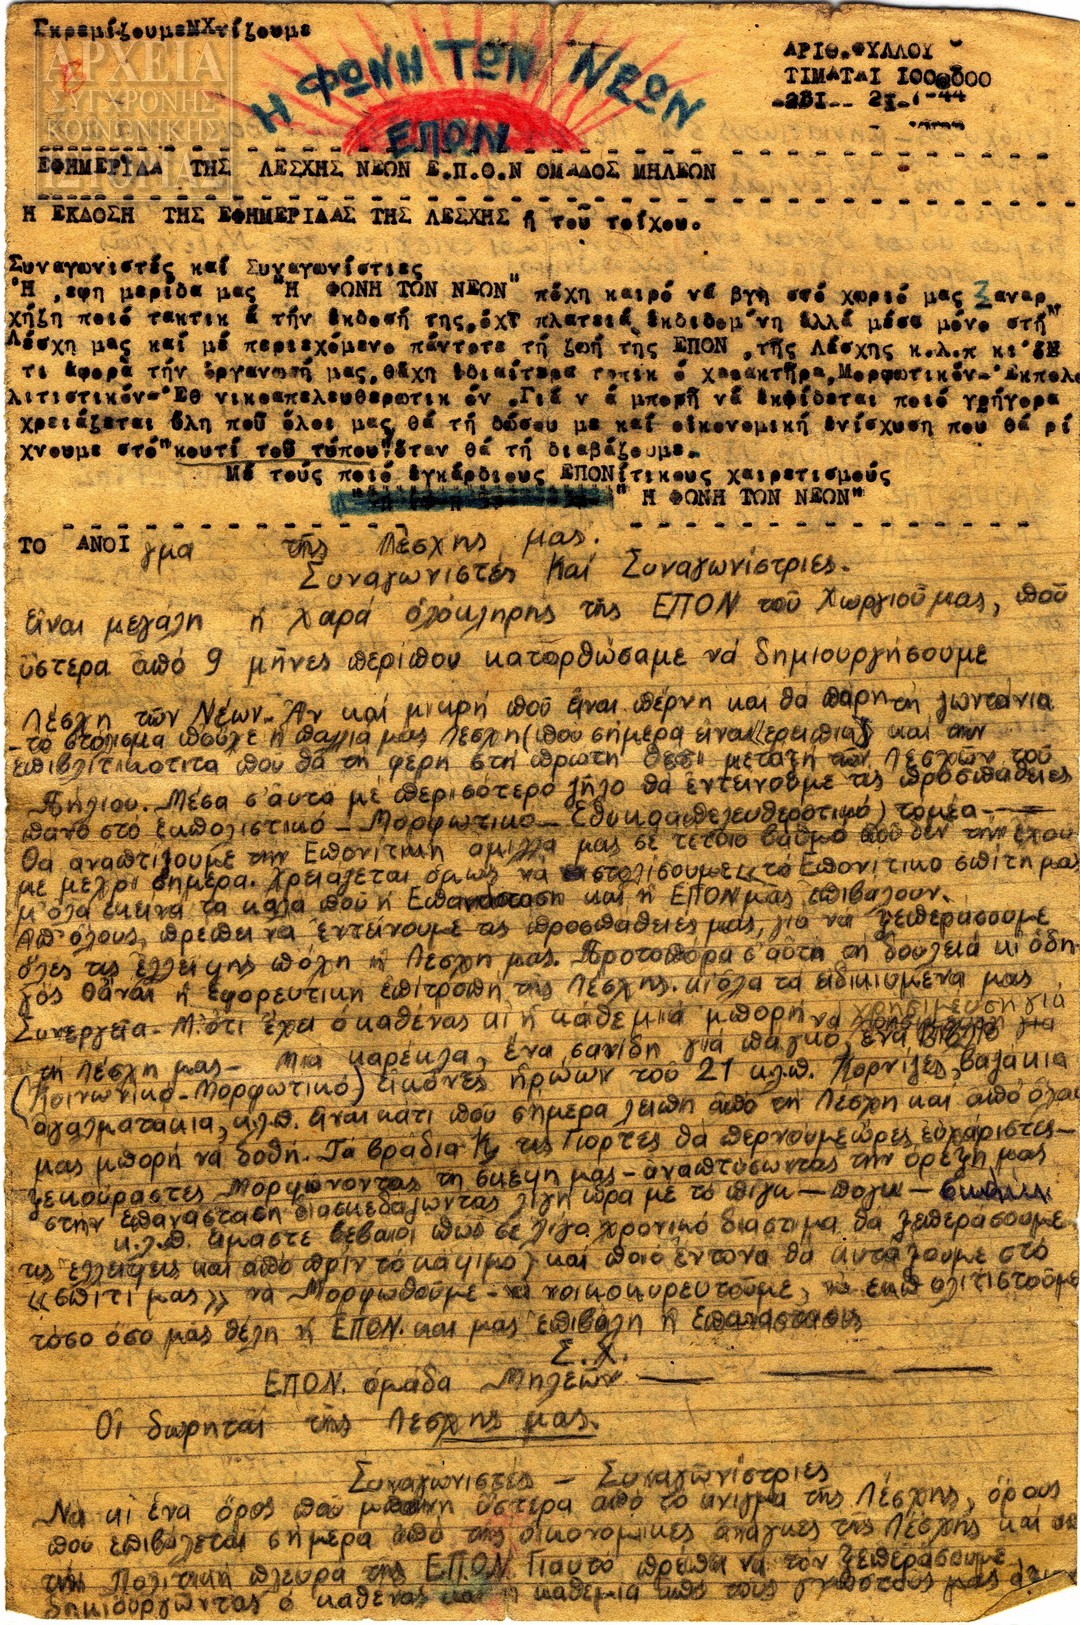 ΓκρεμίζουμεΝΧτίζουμε
ΑΡΧΕΙΑ
ΣΥΓΧΡΟΝΗΣ
ΚΟΙΝΩΝΙΚΗΣ
ΙΣΤΟΡΙΑΣ
Η ΦΩΝΗ ΤΩΝ ΝΕΩΝ
ΕΠΟΝ
ΑΡΙΘ.ΦΥΛΛΟΥ
ΤΙΜΑΤΑΙ 100
21-1-44
ΕΦΗΜΕΡΙΔΑ ΤΗΣ ΛΕΣΧΗΣ ΝΕΩΝ Ε.Π.Ο.Ν ΟΜΑΔΟΣ ΜΗΛΕΩΝ
Η ΕΚΔΟΣΗ ΤΗΣ ΕΦΗΜΕΡΙΔΑΣ ΤΗΣ ΛΕΣΧΗΣ ή τοῦ τοίχου.
Συναγωνιστές καί Συναγωνίστιες
Ἡ ,εφη μερίδα μας "Η ΦΩΝΗ ΤΩΝ ΝΕΩΝ" πὄχη καιρό νά βγῆ στό χωριό μας Ξαναρ
χήζη ποιό τακτικ ά τήν ἔκδοσή της,ὄχι πλατειά ἐκδιδομ'νη ἀλλά μέσα μόνο στή
Λέσχη μας καί μέ περιεχόμενο πάντοτε τή ζωή της ΕΠΟΝ ,τῆς Λέσχης κ.λ.π κι'ὅ
τι ἀφορᾶ τήν ὀργανωσή μας,θἄχη ἰδιαίτερα τοπικ ό χαρακτῆρα,Μορφωτικόν-'Εκπολ
λιτιστικόν-'Εθ νικοαπελευθερωτικ όν .Γιά ν ά μπορῆ νά ἐκφίδεται ποιό γρήγορα
χρειάζεται ὕλη ποῦ ὅλοι μας θά τή δώσου με καί οἰκονομική ἐνίσχυση που θά ρί
χνουμε στό"κουτί τοῦ τύπου"ὅταν θά τή διαβάζουμε.
Μέ τούς ποιό ἐγκάρδιους ΕΠΟΝίτικους χαιρετισμούς
" Η ΦΩΝΗ ΤΩΝ ΝΕΩΝ"
ΤΟ ΑΝΟΙγμα τῆς Λέσχης μας.
Συναγωνιστές Καί Συναγωνίστριες.
εἶναι μεγάλη ἡ χαρά ὁλόκληρης τῆς ΕΠΟΝ τοῦ Χωργιοῦ μας, ποῦ
ὕστερα ἀπό 9 μῆνες περίπου κατορθώσαμε νά δημιουργήσουμε
Λέσχη τῶν Νέων. Ἄν καί μικρή ποῦ εἶναι πέρνη και θά πάρη τη ζωντάνια
-το στόλισμα πούχε ἡ παλιά μας Λέσχη (που σήμερα εἶναι "ερείπια") καί την
ἐπιβλιτικότιτα που θά τή φέρη στή πρώτη θέσι μεταξή τῶν Λεσχῶν τοῦ
Πηλίου. Μέσα σ'αὐτό μέ περισότερο ζῆλο θά ἐντείνουμε τις προσπάθειες
πάνο στό ἐκπολιστικό - Μορφωτικο - Εθνικοαπελευθεροτικό) τομέα.
θα αναπτίζουμε την Επονίτικη αμιλλα μας σε τετοιο βαθμό που δεν την εχου
με μεχρι σημερα. Χρειαζεται ὅμως νά στολίσουμε "το Επονιτικο σπίτη μας
μ'όλα εκείνα τα καλά που ἡ Επανάσταση και ἡ ΕΠΟΝ μας επιβάλουν.
Απ'ὅλους, πρέπει να ἐντείνουμε τις προσπάθειες μας, γιο νά ξεπεράσουμε
ὅλες τις ἔλλειψης πὄχη ἡ Λέσχη μας. Πρoτοπόρα σ'αὐτή τη δουλειά κι ὁδη-
γός θἆναι ἡ ἐφορευτικη ἐπιτροπή της Λέσχης. κι ὅλα τα εἰδικιομένα μας
Συνεργεῖα. Μ'ὅτι ἔχει ὁ καθένας κι ἡ κάθεμιά μπορῆ να χρησιμέυση γιά
τή Λέσχη μας- Μια καρέκλα, ἕνα σανίδη γιά πάγκο, ἕνα βιβλίο
(Κοινωνικο-Μορφωτικό) εἰκόνες ἡρώων του 21 κ.λ.π. Κορνίζες, βαζάκια
αγαλματάκια, κ.λ.π. εἶναι κάτι που σήμερα λείπη ἀπό τή Λέσχη και ἀπό ὅλου
μας μπορῆ νά δοθῆ. Τά βράδια κ. τις Γιορτές θά περνουμε ὧρες εὐχάριστες-
ξεκούραστες Μορφώνοντας τη σκέψη μας - αναπτύσωντας την ὄρεξη μας
στην ἐπανάσταση διασκεδάζωντας λίγη ὥρα με τό πιγκ - πογκ -
κ.λ.π. εἴμαστε βέβαιοι πως σέ λίγο χρονικό διαστιμα θά ξεπεράσουμε
τις ἔλλειψεις και ἀπό πρίν τό κάψιμο) και ποιο ἔντονα θά κυτάξουμε στό
«σπίτι μας» να Μορφωθοῦμε - νά νοικοκυρευτοῦμε, νά εκπολιτιστοῦμε
τόσο ὅσο μᾶς θέλη ἡ ΕΠΟΝ. και μας ἐπιβάλη ἡ Επανάστασις
Σ.Χ.
ΕΠΟΝ. ὁμάδα Μηλεῶν
Οἱ δωρηταί τῆς Λέσχης μας.
Συναγωνιστές - Συναγωνίστριες
Να κι ἕνα ὅρος που ὕστερα ἀπό το άνιγμα τῆς Λέσχης, ὅρους
που επιβάλεται σημερα ἀπο τῆς οικονομικες ανάγκες τῆς Λέσχης και
την Πολιτική πλευρα τῆς ΕΠΟΝ. Γιαυτό πρέπει να τον ξεπεράσουμε
δημιουργώντας ὁ καθενας και ἡ καθεμία από τους γνωστους μας